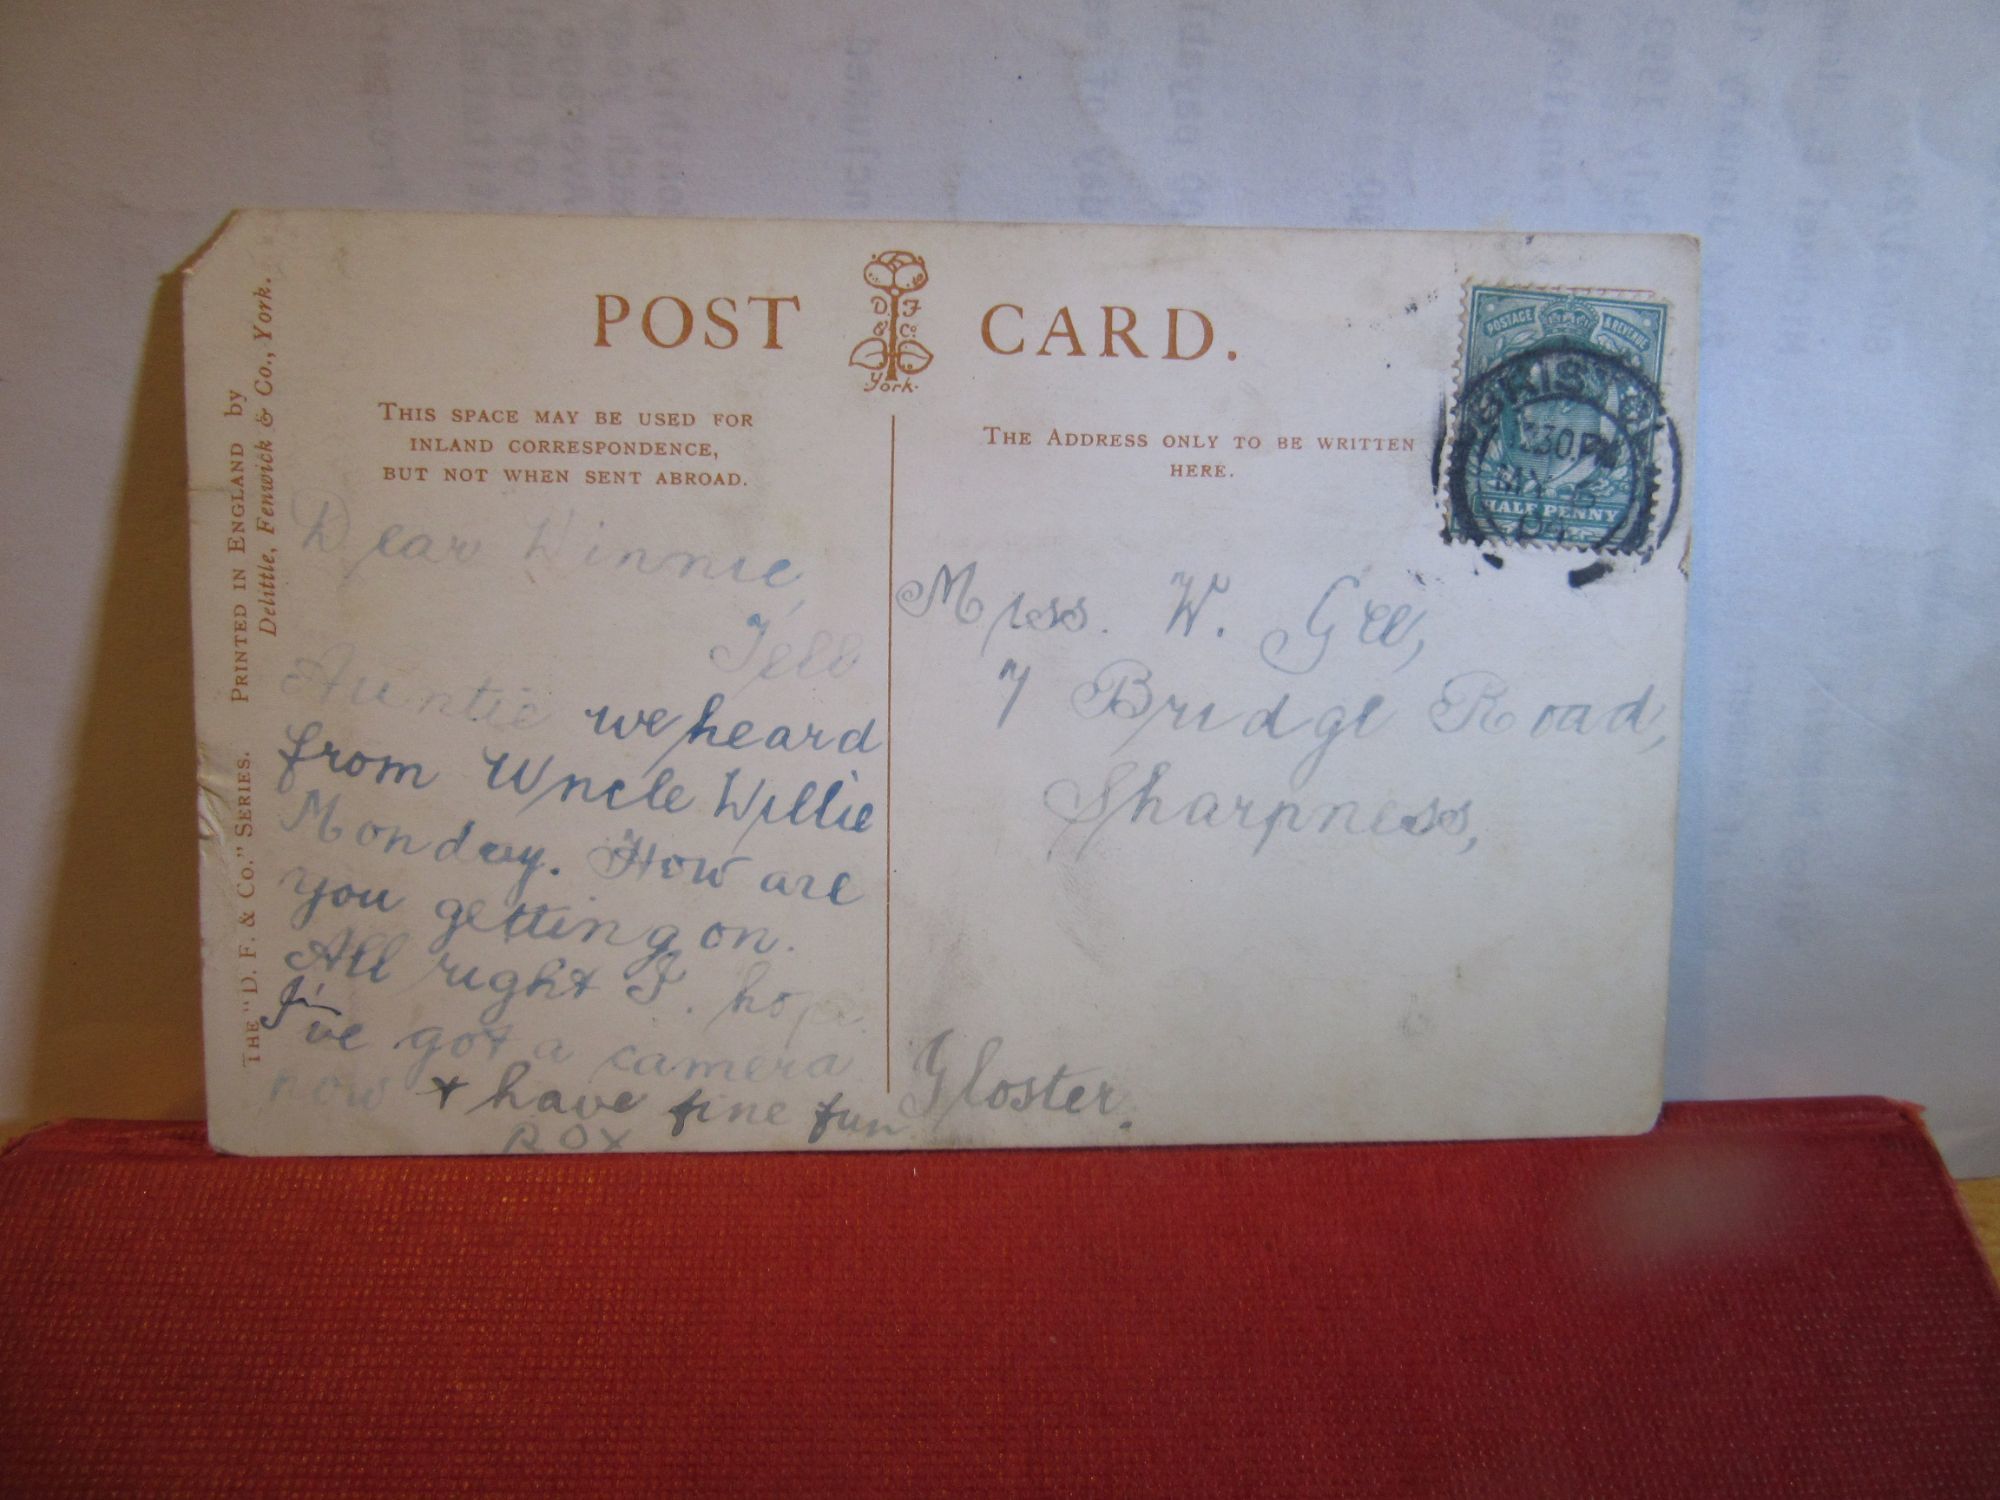 POST CARD.
D. F & Co. York.
THIS SPACE MAY BE USED FOR
INLAND CORRESPONDENCE,
BUT NOT WHEN SENT ABROAD.
THE ADDRESS ONLY TO BE WRITTEN
HERE.
THE "D. F. & CO." SERIES. PRINTED IN ENGLAND by
Delittle, Fenwick & Co., York.
POSTAGE & REVENUE
HALF PENNY
BRISTOL
30.PM
MY
Dear Winnie,
Tell
Auntie we heard
from Uncle Willie
Monday. How are
you getting on.
All right I. hope.
I've got a camera
now + have fine fun
ROX
Miss. W. Gee,
7 Bridge Road,
Sharpness,
Gloster.